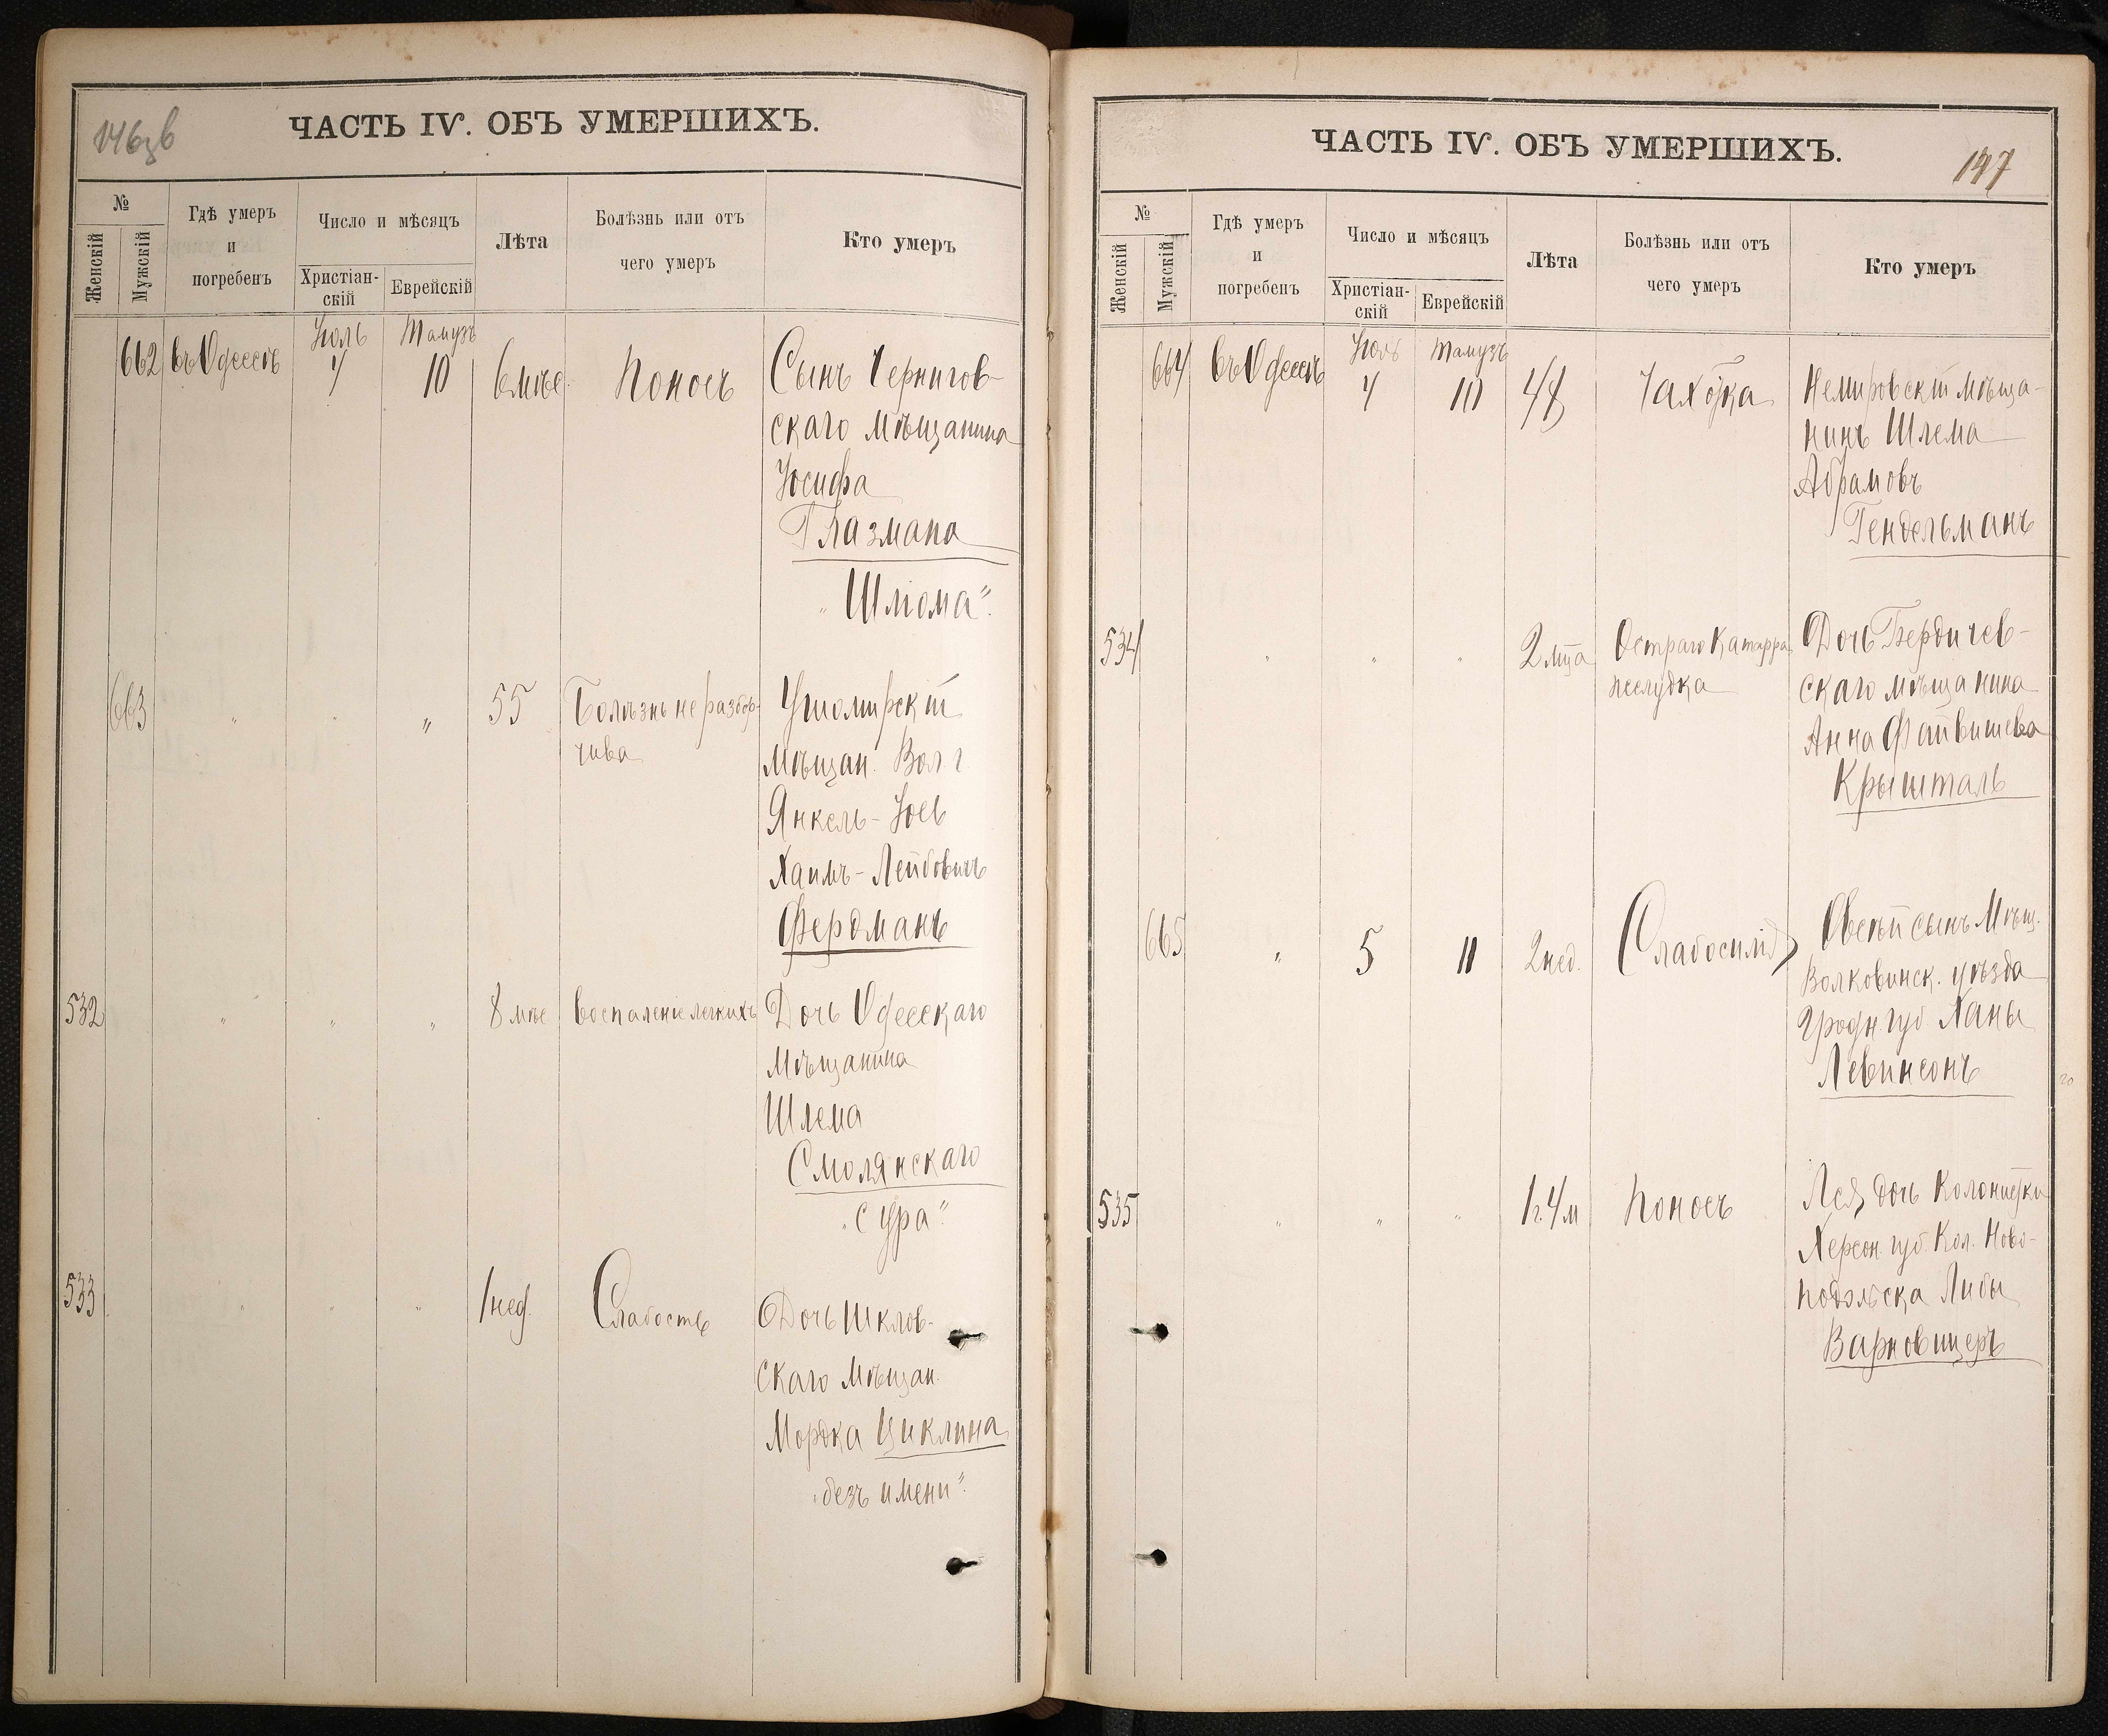 146зв
ЧАСТЬ IV. ОБЪ УМЕРШИХЪ.
№
Женскій
Мужскій
Гдѣ умеръ
и
погребенъ
Число и мѣсяцъ
Христіан-
скій
Еврейскій
Лѣта
Болѣзнь или отъ
чего умеръ
Кто умеръ
Іюль Тамузъ
662 въ Одессѣ 4 10 6 мѣс. Поносъ Сынъ Чернигов-
скаго мѣщанина
Іосифа
Глазмана
"Шлюма".
663 " " " 55 Болѣзнь не разбор-
чива
Ушомирскій
Мѣщан. Вол. г.
Янкель-Іось
Хаимъ-Лейбовичъ
Фердманъ
532 " " " 8 мѣс воспаленіе легкихъ Дочь Одесскаго
Мѣщанина
Шлема
Смолянскаго
"Сура"
533 " " " 1 нед. Слабость Дочь Шклов-
скаго Мѣщан.
Мордка Циклина
"безъ имени".
ЧАСТЬ IV. ОБЪ УМЕРШИХЪ.
147
№
Женскій
Мужскій
Гдѣ умеръ
и
погребенъ
Число и мѣсяцъ
Христіан-
скій
Еврейскій
Лѣта
Болѣзнь или отъ
чего умеръ
Кто умеръ
Іюль Тамузъ
664 въ Одессѣ 4 10 48 Чахотка Немировскій мѣща-
нинъ Шлема
Абрамовъ
Гендельманъ
534 " " " 2 мца Остраго Катарра
желудка
Дочь Бердичев-
скаго мѣщанина
Анна Файвишева
Крышталь
665 " 5 11 2 нед. Слабосилія Овсѣй сынъ Мѣщ.
Волковинск. уѣзда
Гродн. губ Ханы
Левинсонъ
535 " " " 1 г. 4 м Поносъ Лея дочь Колонистки
Херсон. губ. Кол. Ново-
подольска Либы
Варновицеръ